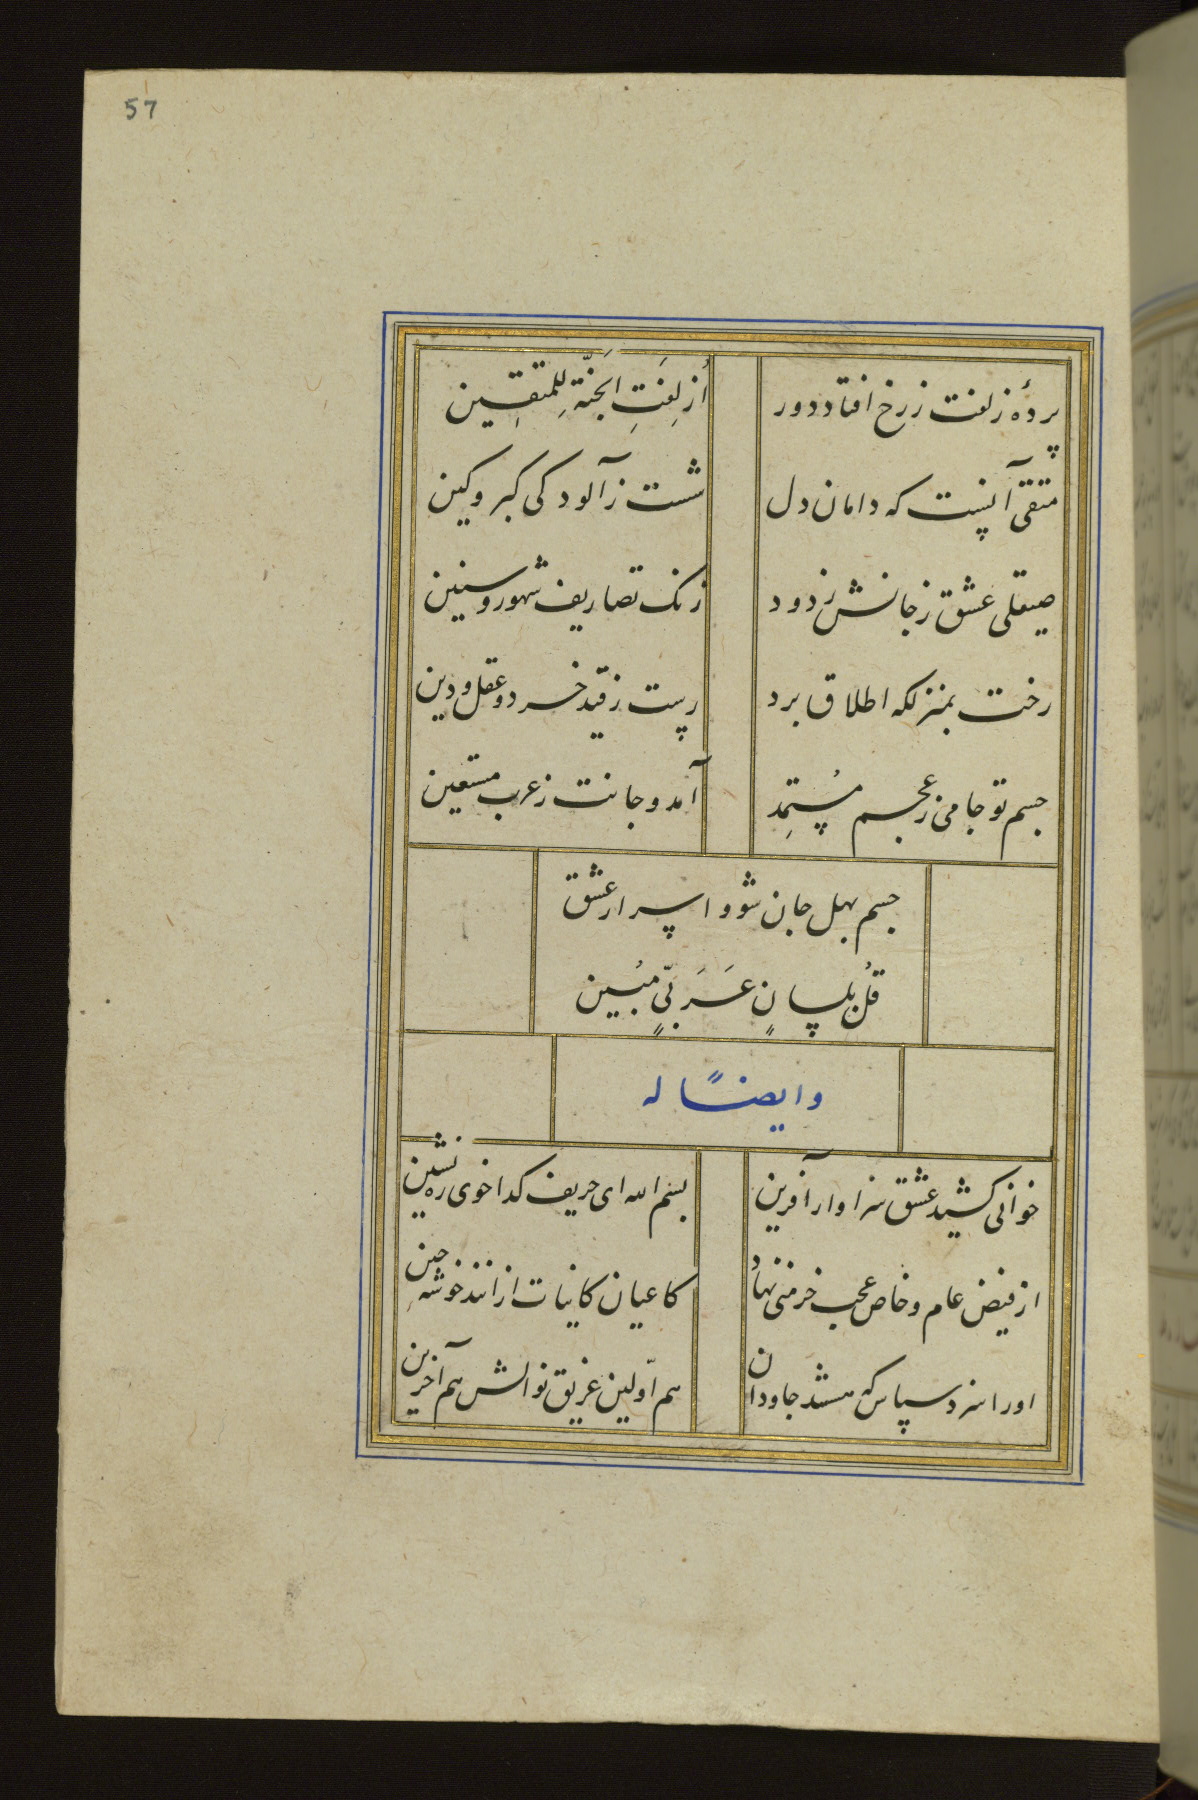 57
پردهٔ زلفت ز رخ افتاد دور
اُزلِفَتِ الجَنَّة لِلمتقین
متقی آنست که دامان دل
شست ز آلودکی کبر وکین
صیقلی عشق ز جانش زدود
زنک تصاریف شهور و سنین
رخت بمنزلکه اطلاق برد
رست ز قید خرد و عقل و دین
جسم تو جامی ز عجم مُستمِد
آمد و جانت ز عرب مستعین
جسم بهل جان شو و اسرار عشق
قُل بلسانٍ عَرَبیٍّ مُبین
وایضاً له
خوانی کشید عشق سزاوار آفرین
بسم الله ای حریف کدا خوی ره نشین
از فیض عام و خاص عجب خرمنی نهاد
کاعیان کاینات ازانند خوشه چین
او را سزد سپاس که هستند جاودان
هم اوّلین غریق نوالش هم آخرین